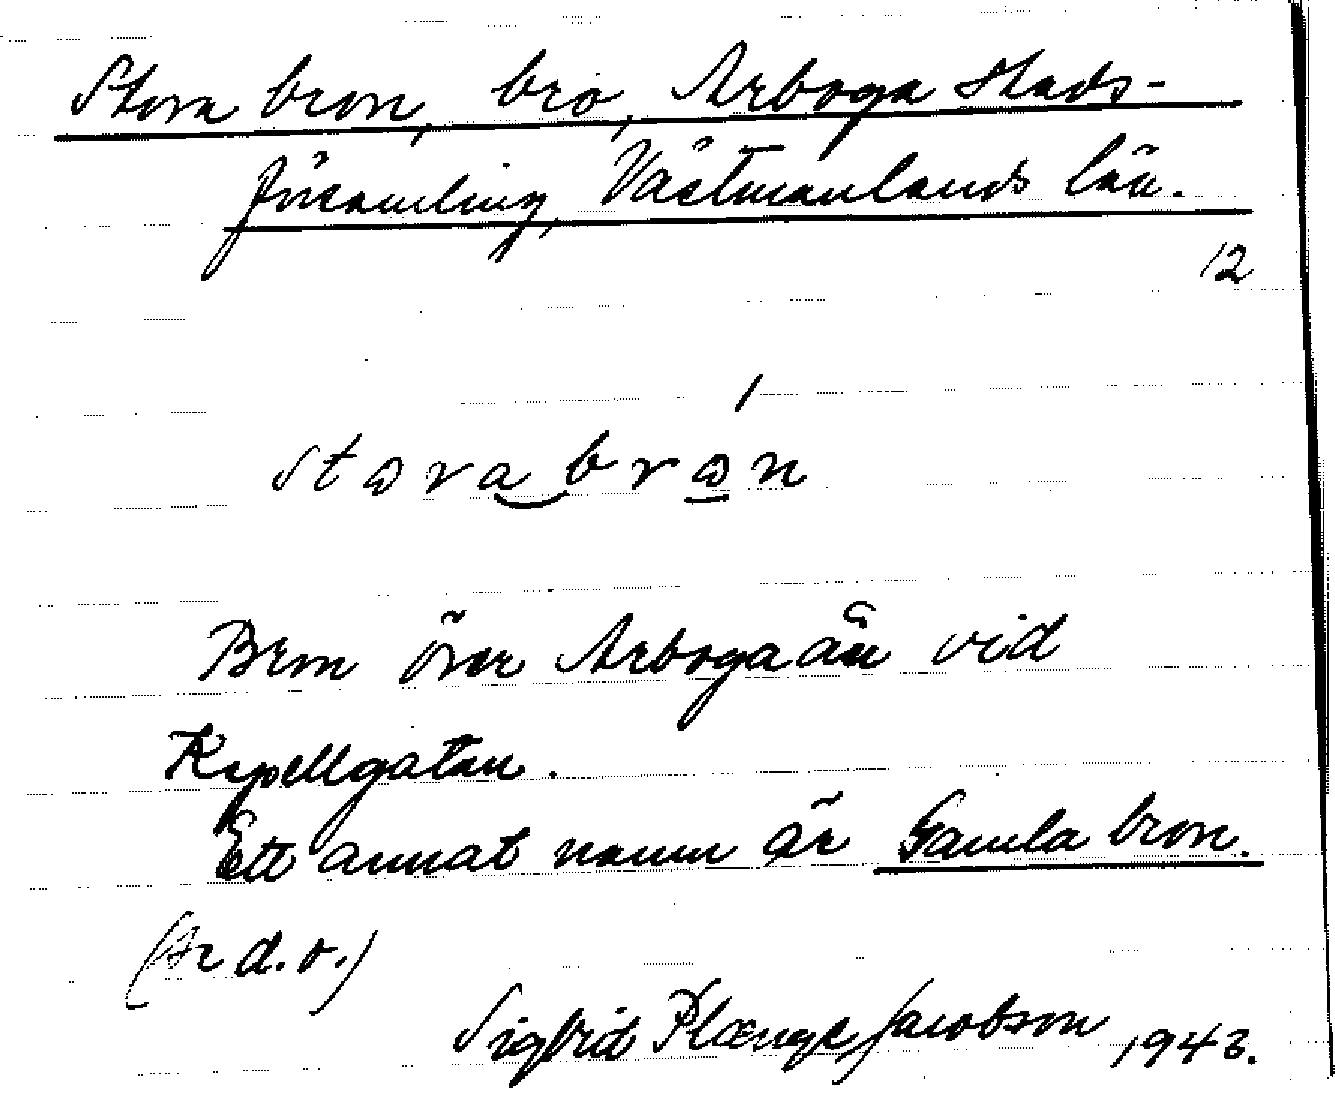 Stora bron, bro, Arboga stads-
församling, Västmanlands län.
12
stɷra‿brɷ̲́n
Bron över Arbogaån vid
Kapellgatan.
Ett annat namn är Gamla bron.
(Se d.o.)
Sigfrid Plænge Jacobson 1943.